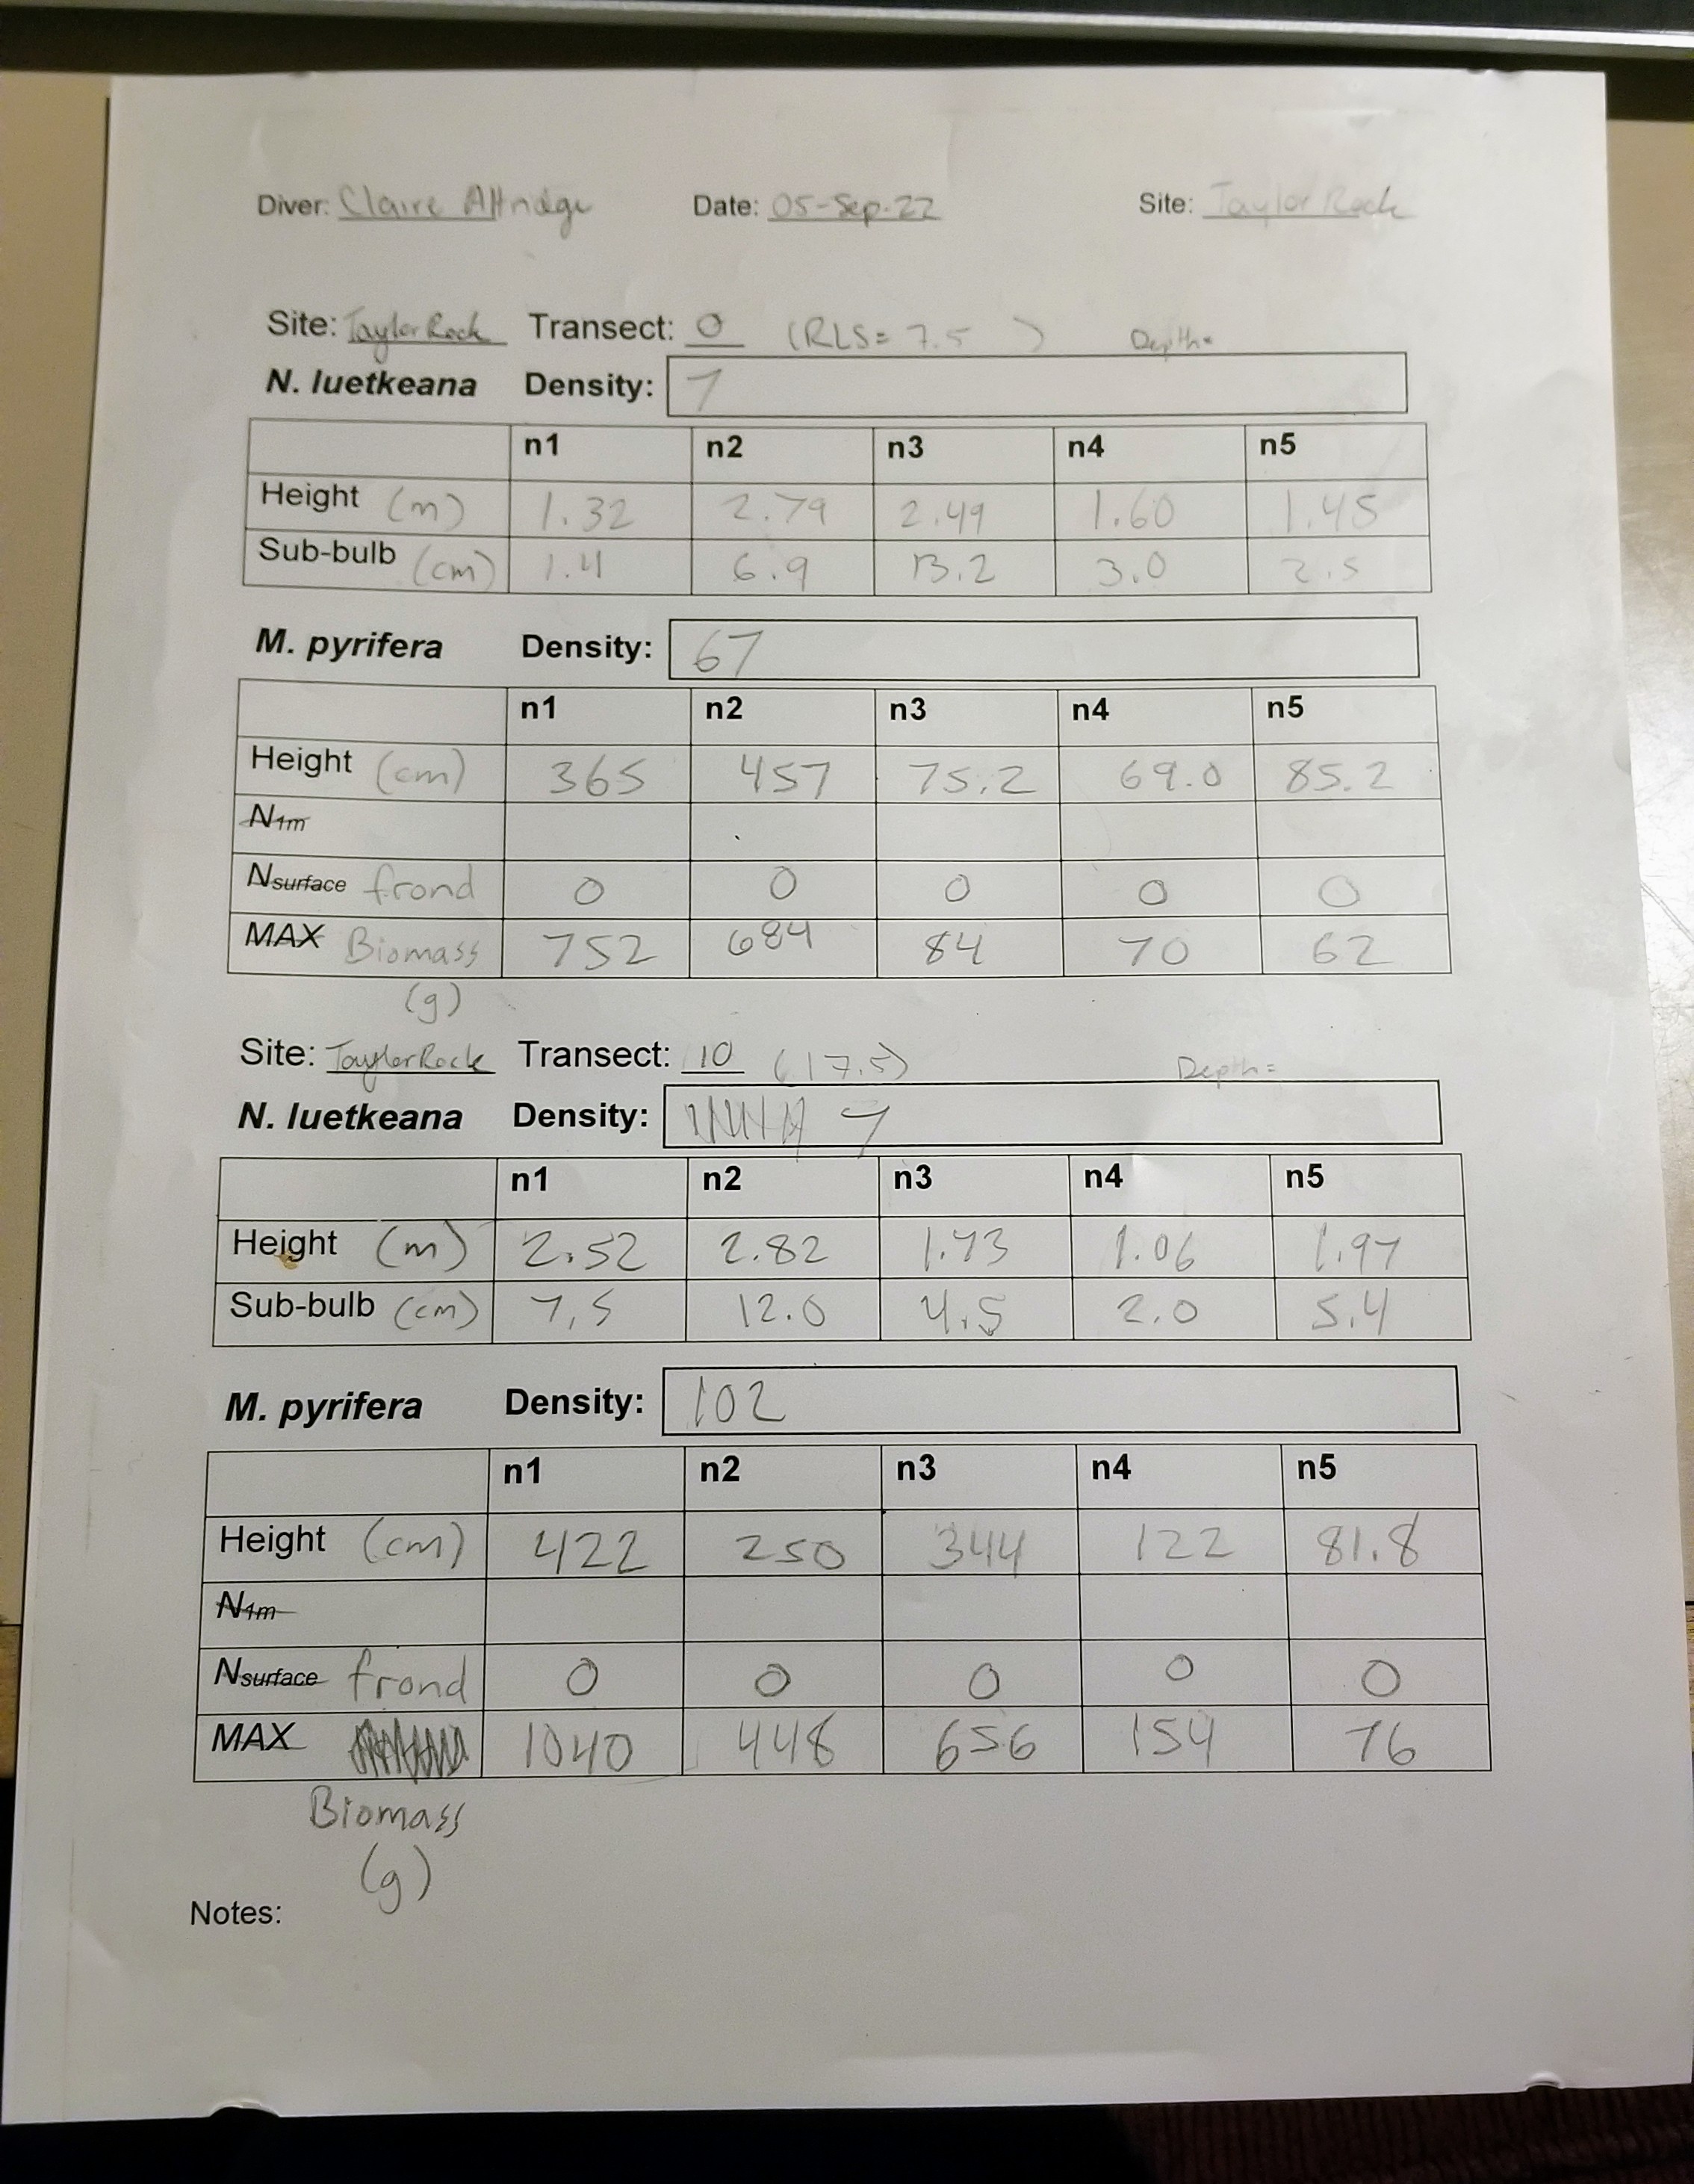 Diver: Claire Attridge Date: 05-Sep-22 Site: Taylor Rock
Site: Taylor Rock Transect: 0 (RLS= 7.5 ) Depth=
N. luetkeana Density: 7
n1 n2 n3 n4 n5
Height (m) 1.32 2.79 2.49 1.60 1.45
Sub-bulb (cm) 1.4 6.9 13.2 3.0 2.5
M. pyrifera Density: 67
n1 n2 n3 n4 n5
Height (cm) 365 457 75.2 69.0 85.2
N1m
Nsurface frond 0 0 0 0 0
MAX Biomass 752 684 84 70 62
(g)
Site: Taylor Rock Transect: 10 (17.5) Depth=
N. luetkeana Density: 7
n1 n2 n3 n4 n5
Height (m) 2.52 2.82 1.73 1.06 1.97
Sub-bulb (cm) 7.5 12.0 4.5 2.0 5.4
M. pyrifera Density: 102
n1 n2 n3 n4 n5
Height (cm) 422 250 344 122 81.8
N1m
Nsurface frond 0 0 0 0 0
MAX 1040 448 656 154 76
Biomass
(g)
Notes: